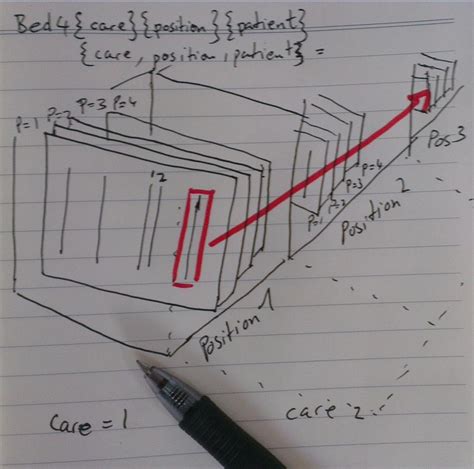 Bed4{care}{position}{patient}
{care, position, patient} =
P=1 P=2 P=3 P=4
12
P=1 P=2 P=3 P=4
Pos3
Position 2
Position 1
care = 1
care 2